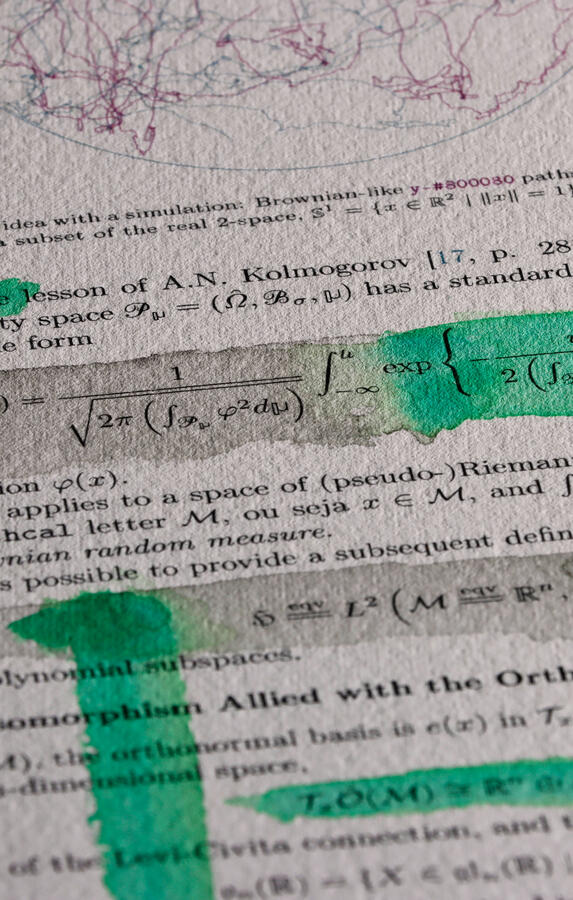 idea with a simulation: Brownian-like y-#800080 paths
a subset of the real 2-space, 𝕊¹ = {x ∈ ℝ² | ‖x‖ = 1}
lesson of A.N. Kolmogorov [17, p. 28
ty space 𝒫_𝕡 = (Ω̂, ℬ_σ, 𝕡) has a standard
e form
) = 1 / √(2π (∫_𝒫_𝕡 φ²d𝕡)) ∫_{-∞}^{u} exp { − 2 (∫
ion φ(x).
applies to a space of (pseudo-)Rieman
hcal letter ℳ, ou seja x ∈ ℳ, and ∫
nian random measure.
s possible to provide a subsequent defin
ℌ eqv L² (ℳ eqv ℝⁿ,
olynomial subspaces.
somorphism Allied with the Orth
ℳ), the orthonormal basis is e(x) in 𝒯
-dimensional space.
𝒯ₓÖ(ℳ) ≅ ℝⁿ
of the Levi-Civita connection, and t
(ℝ) = {X ∈ gl (ℝ)